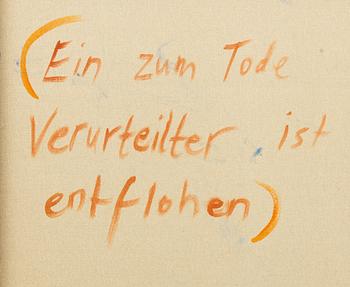 (Ein zum Tode
Verurteilter ist
entflohen)